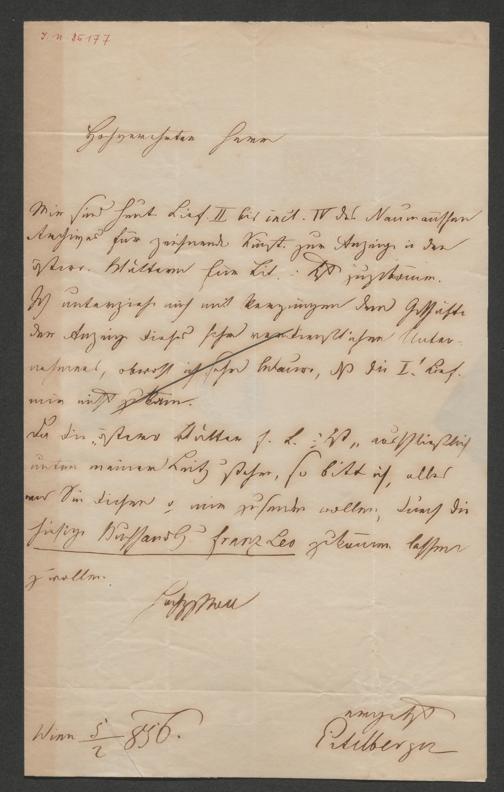 I. N. 25177
Hochverehrter Herr
Mir sind heut Lief. II bis incl. IV des Naumannschen
Archives für zeichnende Kunst zur Anzeige in den
österr. Blättern für Lit. u. Kst zugekomm.
Ich unterziehe mich mit Vergnügen dem Geschäfte
der Anzeige dieses sehr verdienstlichen Unter-
nehmens, obwohl ich sehr bedaure, daß die I. Lief.
mir nicht zukam.
Da die „österr Blätter f. L. u. Kst" ausschließlich
unter meiner Leitg stehen, so bitt ich, alles
was Sie dieser o mir zusenden wollen, durch die
hiesige Buchhandlg Franz Leo zukommen lassen
zu wollen.
Hochachtend
ergebst
Eitelberger
Wien 5/2 856.